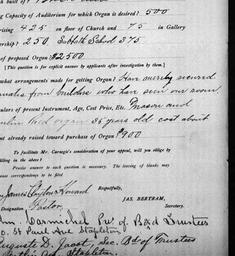 g Capacity of Auditorium for which Organ is desired) 500
rising 425 on floor of Church and 75 in Gallery
ership) 250 Sabbath School 375
of proposed Organ $2500
[This question is for explicit answer by applicants after investigation by them.]
what arrangements made for getting Organ? Have merely secured
from builders who have seen our room.
ulars of present Instrument, Age, Cost Price, Etc. Mason and
organ 35 years old cost about
nt already raised toward purchase of Organ $900
To facilitate Mr. Carnegie's appreciation, will you oblige by
lling in the above?
Precise answer to each question is necessary. The leaving of blanks may
cause correspondents to be ignored.
Respectfully,
James Clayton Howard
JAS. BERTRAM,
Designation Pastor Secretary.
John Carmichael Pres of Board Trustees
St Paul Ave Stapleton
Auguste D. Jacot, Sec. Bd of Trustees
Stapleton.